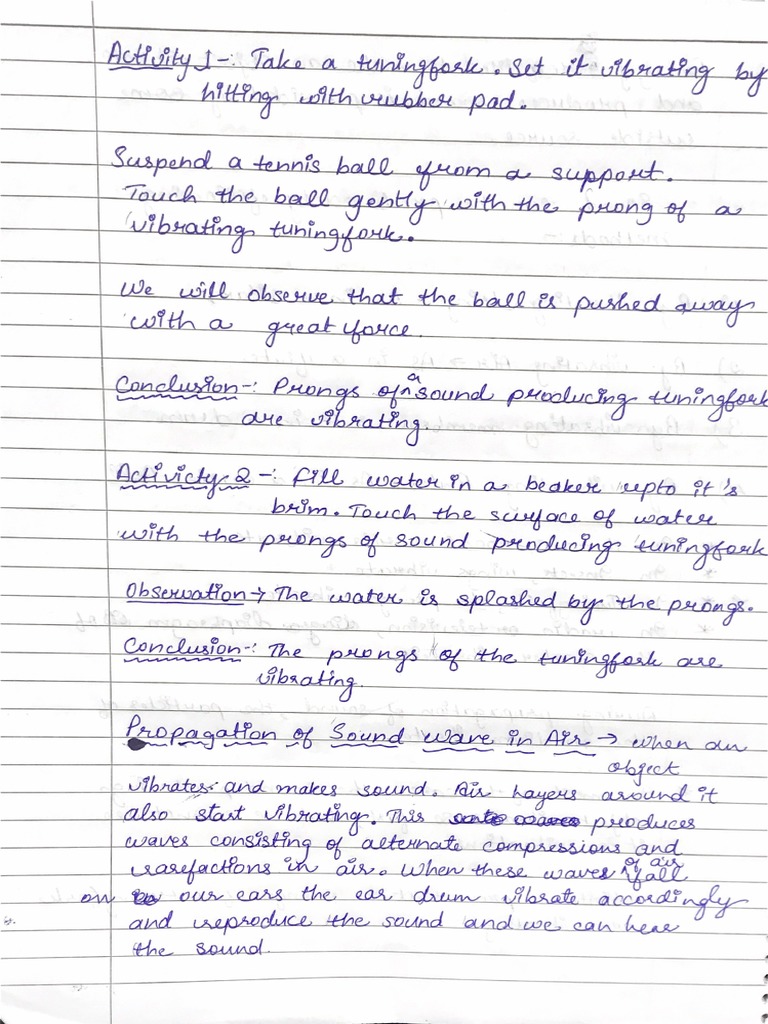 Activity 1 -: Take a tuningfork. Set it vibrating by
hitting with rubber pad.
Suspend a tennis ball from a support.
Touch the ball gently with the prong of a
vibrating tuningfork.
We will observe that the ball is pushed away
with a great force.
Conclusion -: Prongs of a sound producing tuningfork
are vibrating.
Activicty 2 -: fill water in a beaker upto it's
brim. Touch the surface of water
with the prongs of sound producing tuningfork
Observation → The water is splashed by the prongs.
Conclusion -: The prongs of the tuningfork are
vibrating.
Propagation of Sound wave in Air → when an
object
vibrates and makes sound. Air layers around it
also start vibrating. This produces
waves consisting of alternate compressions and
rarefactions in air. When these waves of air fall
on our ears the ear drum vibrate accordingly
and reproduce the sound and we can hear
the sound.